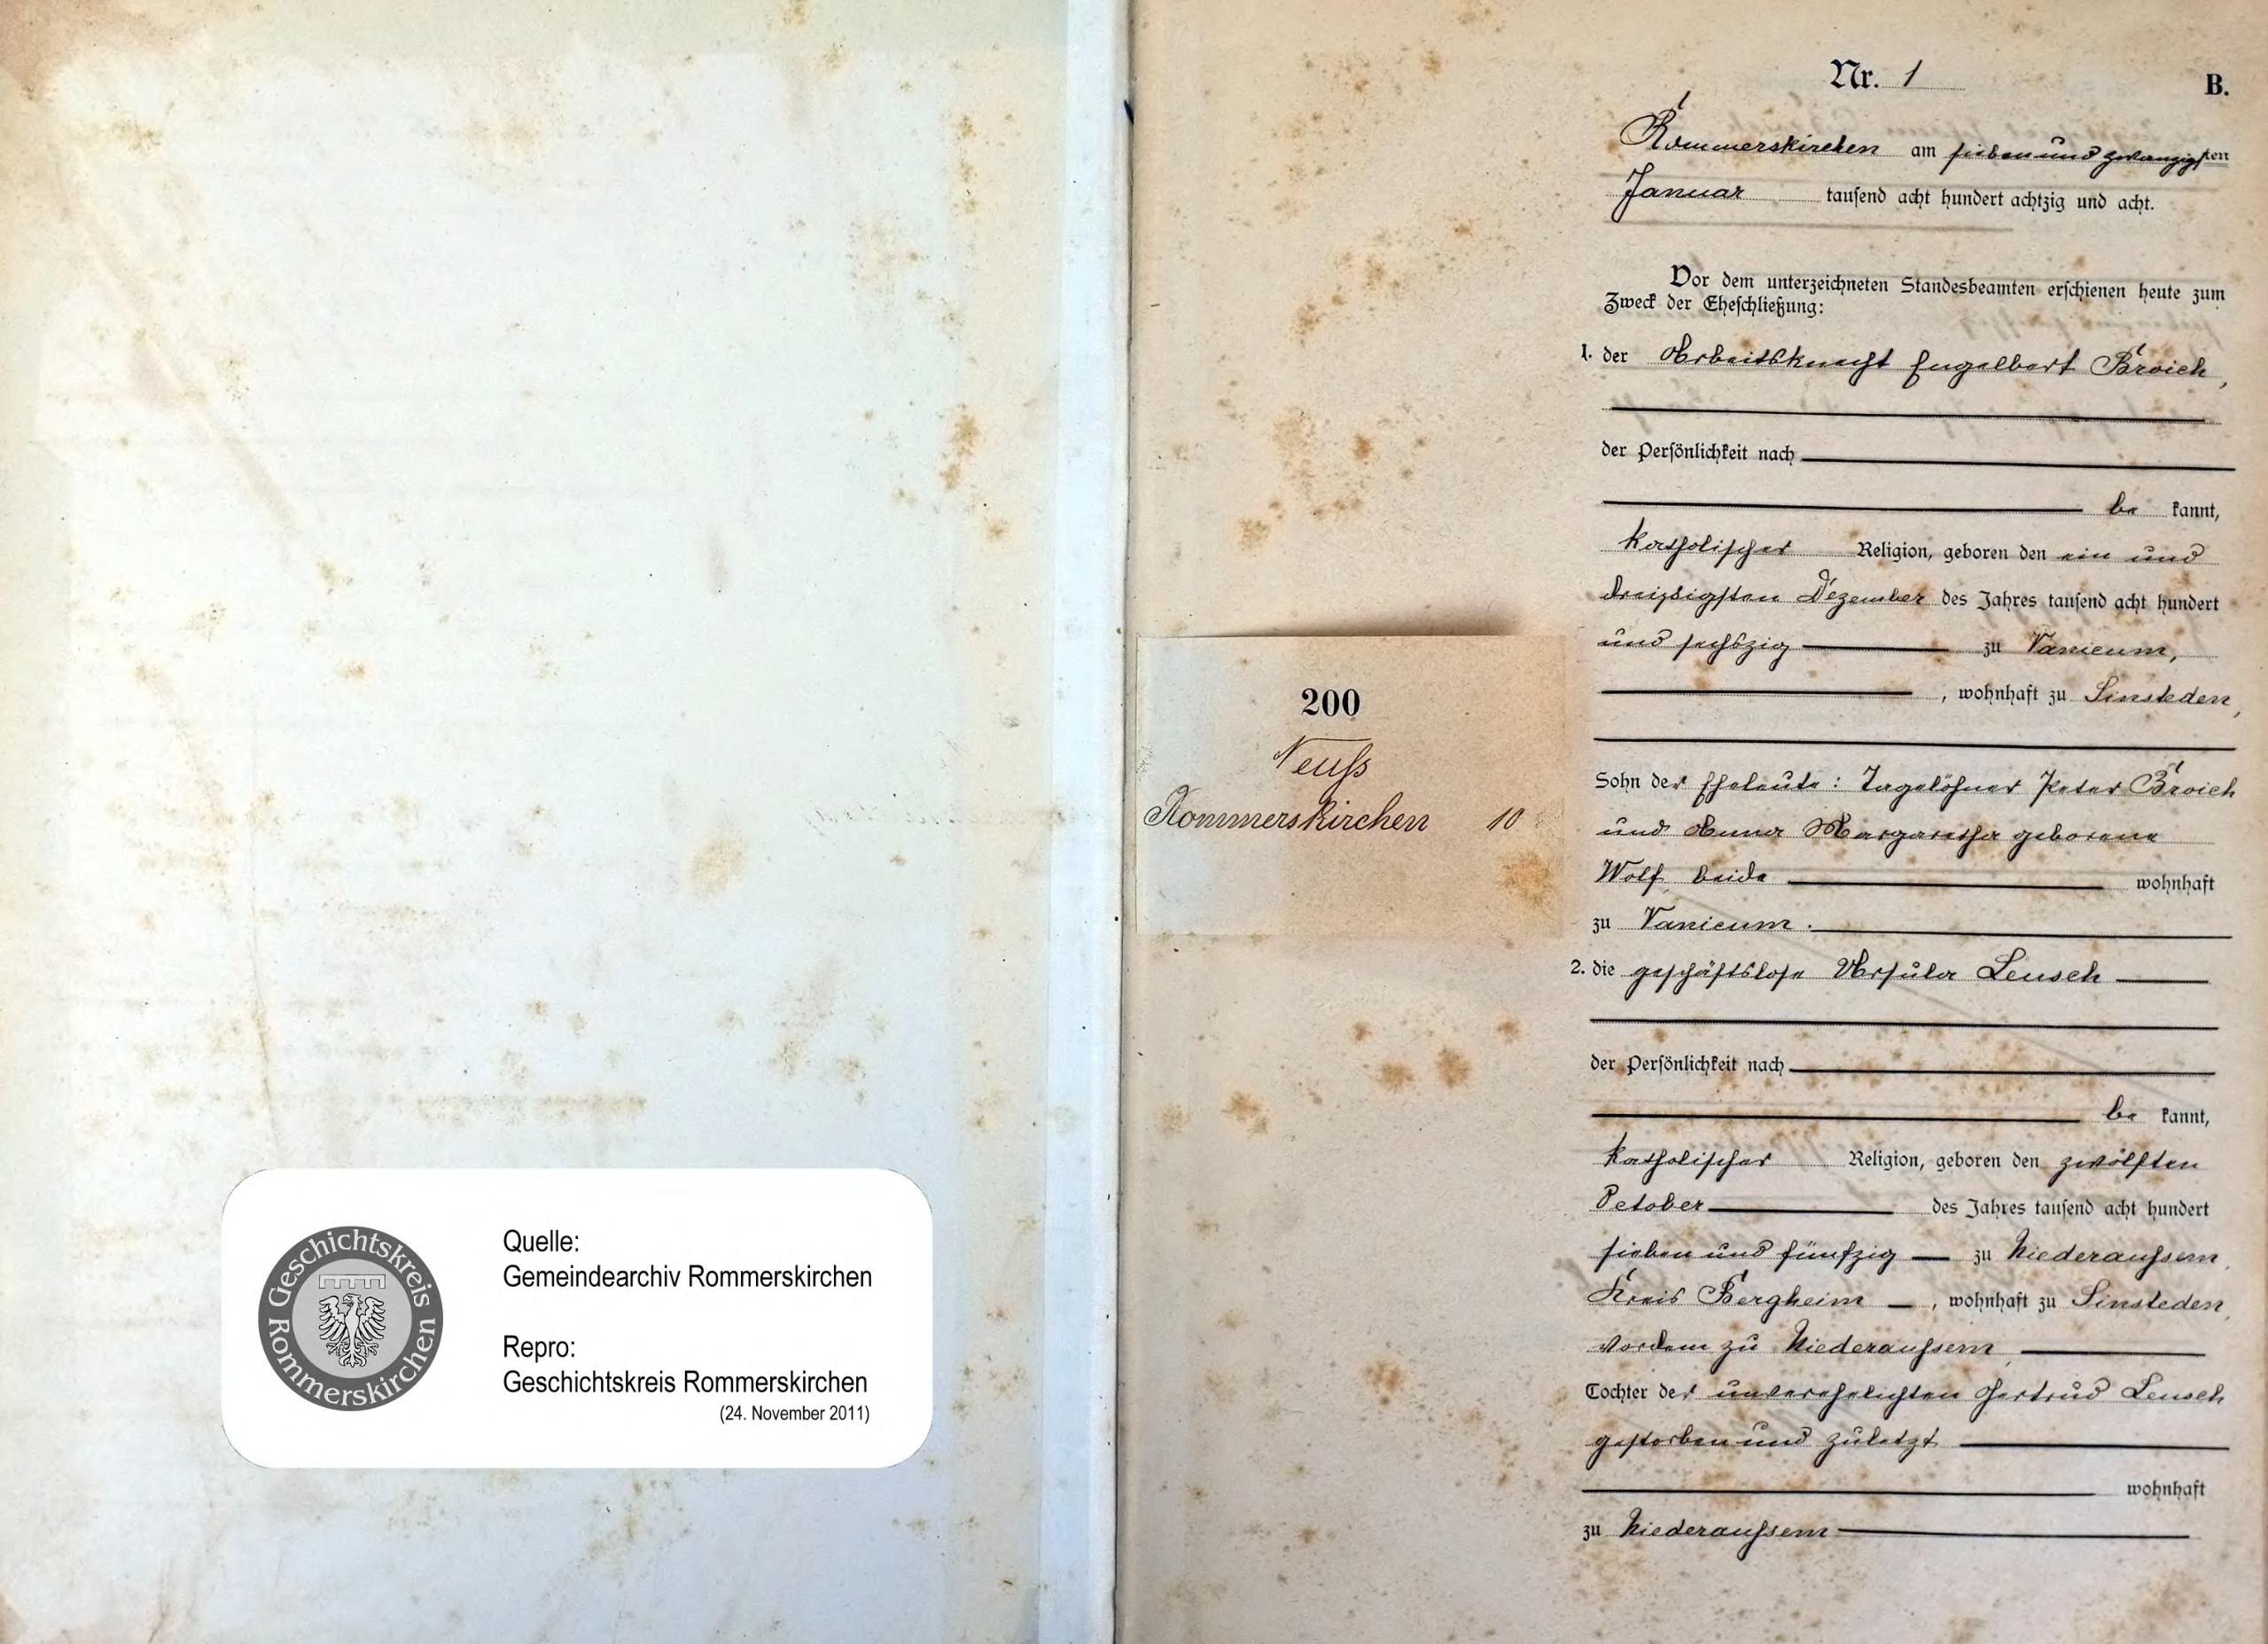 Geschichtskreis Rommerskirchen
Quelle:
Gemeindearchiv Rommerskirchen
Repro:
Geschichtskreis Rommerskirchen
(24. November 2011)
200
Neuß
Rommerskirchen 10
Nr. 1
B.
Rommerskirchen am sieben und zwanzigsten
Januar tausend acht hundert achtzig und acht.
Vor dem unterzeichneten Standesbeamten erschienen heute zum
Zweck der Eheschließung:
1. der Arbeitsknecht Engelbert Broich,
der Persönlichkeit nach
be kannt,
katholischer Religion, geboren den ein und
dreizsigsten Dezember des Jahres tausend acht hundert
und sechszig zu Vanicum,
, wohnhaft zu Sinsteden,
Sohn der Eheleute: Tagelöhner Peter Broich
und Anna Margaretha geborene
Wolf beide wohnhaft
zu Vanicum.
2. die geschäftslose Ursula Leusch
der Persönlichkeit nach
be kannt,
katholischer Religion, geboren den zwölften
October des Jahres tausend acht hundert
sieben und fünfzig zu Niederaußem,
Kreis Bergheim, wohnhaft zu Sinsteden,
vordem zu Niederaußem,
Tochter der unverehelichten Gertrud Leusch
gestorben und zuletzt
wohnhaft
zu Niederaußem